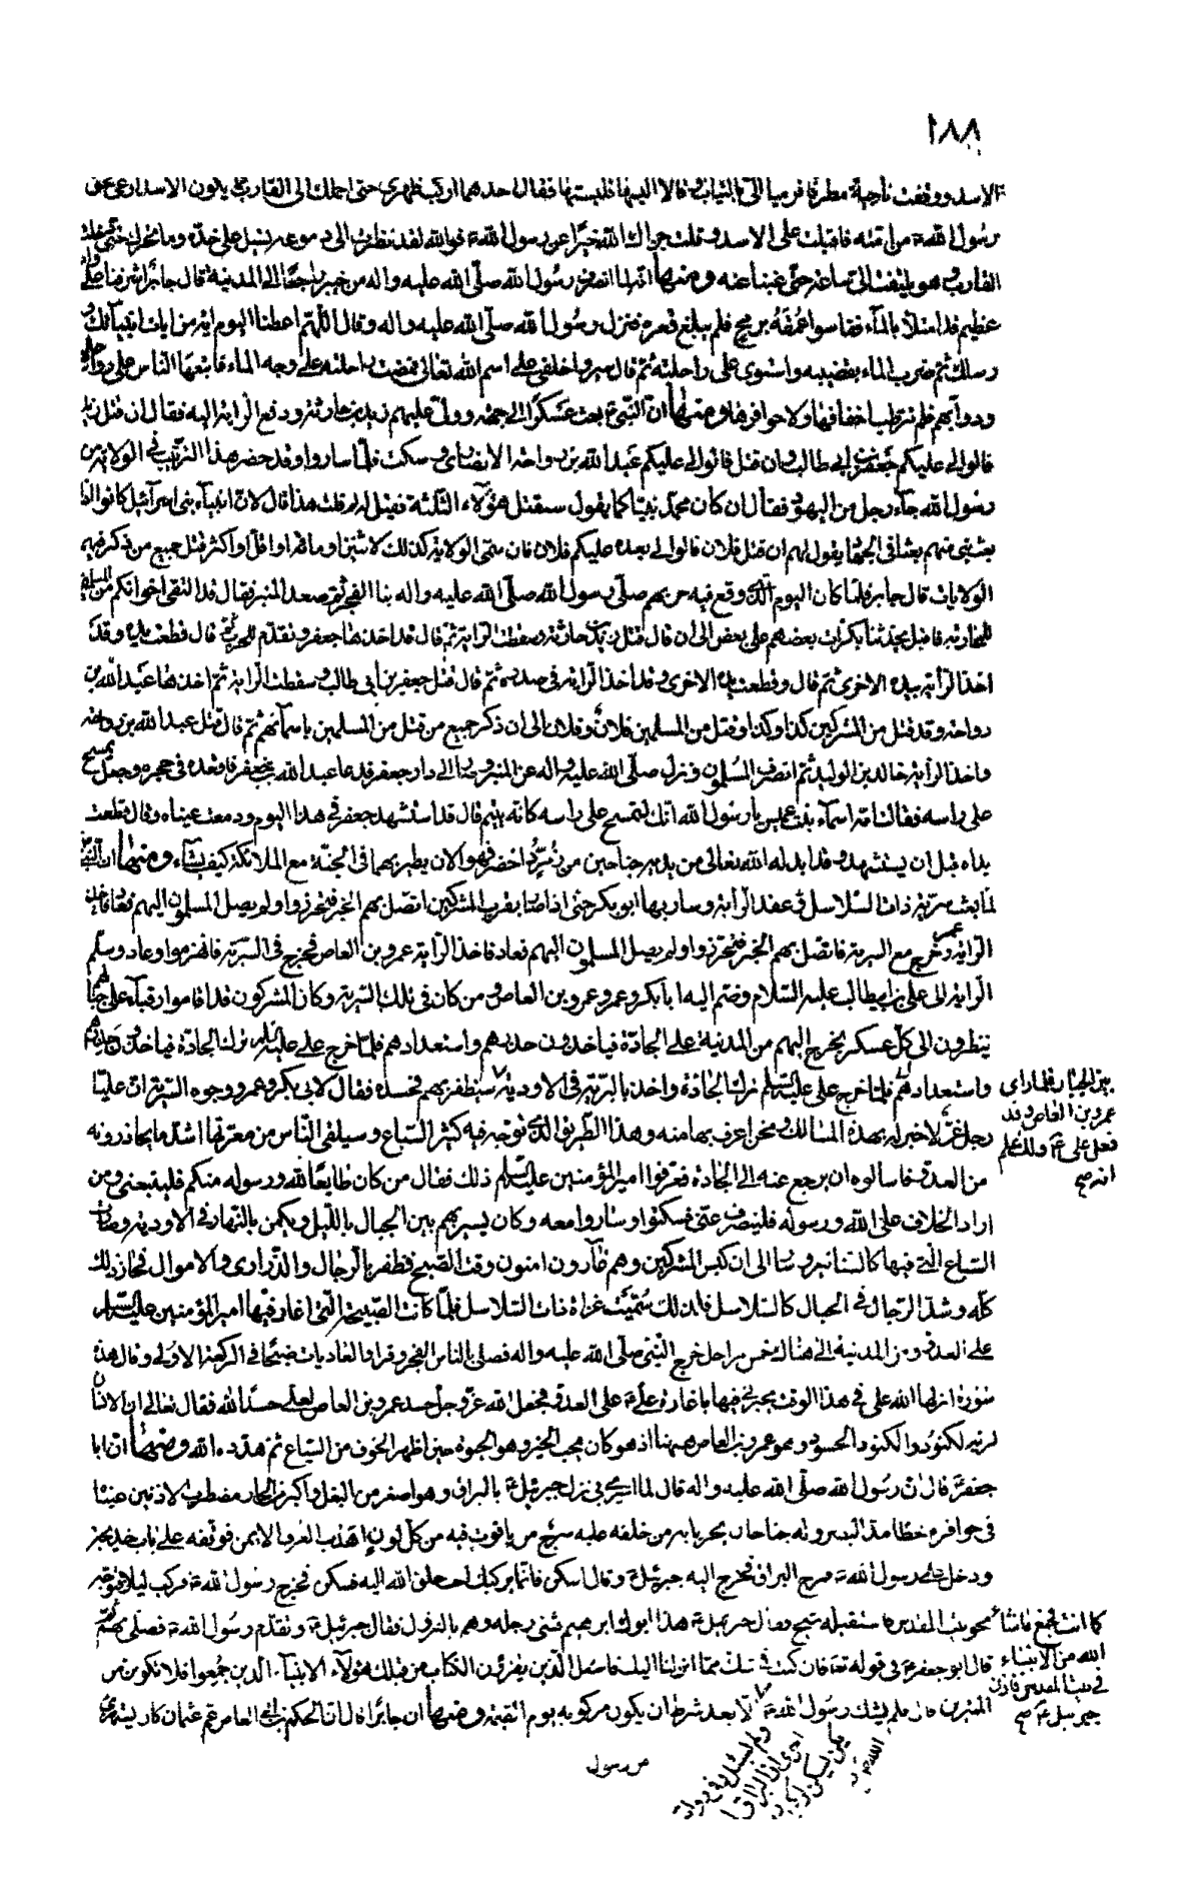 ١٨٨
الاسد ووقفت ناحية مطرقا فرميا الى بالثياب وقالا البسها فلبستها فقال احدهما اركب ظهري حتى احملك الى القارب يكون الاسد ارعى لحق
رسول الله من امته فاقبلت على الاسد وقلت جزاك الله خيرا عن رسول الله فوالله لقد نظرت الى دموعه تسيل على خده وما تحرك حتى دخلت
القارب وهو يلتفت الى ساعة حتى غبنا عنه ومنها انه لما انصرف رسول الله صلى الله عليه واله من خيبر راجعا الى المدينة قال جابر اشرفنا على واد
عظيم قد امتلأ بالماء فقاسوا عمقه برمح فلم يبلغ قعره فنزل رسول الله صلى الله عليه واله وقال اللهم اعطنا اليوم اية من ايات انبيائك و
رسلك ثم ضرب الماء بقضيبه واستوى على راحلته ثم قال سيروا خلفي على اسم الله تعالى فمضت راحلته على وجه الماء فاتبعها الناس على رواحلهم
ودوابهم فلم تترطب اخفافها ولا حوافرها ومنها ان النبي بعث عسكرا الى موته وولى عليهم زيد بن حارثة ودفع الراية اليه فقال ان قتل زيد
فالوالي عليكم جعفر بن ابي طالب وان قتل فالوالي عليكم عبد الله بن رواحة الانصاري وسكت فلما ساروا وقد حضر هذا الترتيب في الولاة من
رسول الله جاء رجل من اليهود فقال ان كان محمد نبيا كما يقول سيقتل هؤلاء الثلثة فقيل له لم قلت هذا قال لان انبياء بني اسرائيل كانوا اذا
بعث نبي منهم بعثا في الجهاد يقول لهم ان قتل فلان فالوالي بعده عليكم فلان فان سمى الولاية كذلك لاثنين او مائة او اقل او اكثر قتل جميع من ذكر فيهم
الولايات قال جابر فلما كان اليوم الذي وقع فيه حربهم صلى رسول الله صلى الله عليه واله بنا الفجر ثم صعد المنبر فقال قد التقى اخوانكم من المشركين
للمحاربة فاقبل يحدثنا بكرات بعضهم على بعض الى ان قال قتل زيد بن حارثة وسقطت الراية ثم قال قد اخذها جعفر وتقدم للحرب ثم قال قطعت يده وقد
اخذ الراية بيده الاخرى ثم قال وقطعت يده الاخرى وقد اخذ الراية في صدره ثم قال قتل جعفر بن ابي طالب وسقطت الراية ثم اخذها عبد الله بن
رواحة وقد قتل من المشركين كذا وكذا وقتل من المسلمين فلان وفلان الى ان ذكر جميع من قتل من المسلمين باسمائهم ثم قال قتل عبد الله بن رواحة
واخذ الراية خالد بن الوليد ثم انصرف المسلمون ونزل صلى الله عليه واله عن المنبر وصار الى دار جعفر فدعا عبد الله بن جعفر فاقعده في حجره وجعل يمسح
على راسه فقالت امه اسماء بنت عميس يا رسول الله انك لتمسح على راسه كانه يتيم قال قد استشهد جعفر في هذا اليوم ودمعت عيناه وقال قطعت
يداه قبل ان يستشهد وقد ابدله الله تعالى من يديه جناحين من زمرد اخضر فهو الان يطير بهما في الجنة مع الملائكة كيف يشاء ومنها ان النبي
لما بعث سرية ذات السلاسل في عقد الراية وسار بها ابو بكر حتى اذا صار بقرب المشركين اتصل بهم الخبر فتحرزوا ولم يصل المسلمون اليهم فعاد فاخذ
الراية عمر وخرج مع السرية فاتصل بهم الخبر فتحرزوا ولم يصل المسلمون اليهم فعاد فاخذ الراية عمرو بن العاص فخرج في السرية فانهزموا وعاد وسلم
الراية الى علي بن ابي طالب عليه السلام وضم اليه ابا بكر وعمر وعمرو بن العاص ومن كان في تلك السرية وكان المشركون قد اقاموا رقباء على جبالهم
ينظرون الى كل عسكر يخرج اليهم من المدينة على الجادة فياخذون حذرهم واستعدادهم فلما خرج علي عليه السلام ترك الجادة فياخذون حذرهم
واستعدادهم فلما خرج علي عليه السلام ترك الجادة واخذ بالسرية في الاودية سيظفر بهم فحسده فقال لابي بكر وعمر ووجوه السرية ان عليا
بين الجبال فلما راى عمرو بن العاص وقد فعل علي ذلك علم انه صح
رجل غر لا خبرة له بهذه المسالك ونحن اعرف بها منه وهذا الطريق الذي توجه فيه كثير السباع وسيلقى الناس من معرتها اشد ما يحاذرونه
من العدو فاسالوه ان يرجع عنه الى الجادة فعرفوا امير المؤمنين عليه السلم ذلك فقال من كان طايعا لله ورسوله منكم فليتبعني ومن
اراد الخلاف على الله ورسوله فلينصرف عني فسكتوا وساروا معه وكان يسير بهم بين الجبال بالليل ويكمن بالنهار في الاودية وصارت
السباع التي فيها كالسنانير وسار الى ان كبس المشركين وهم غارون امنون وقت الصبح فظفر بالرجال والذراري والاموال فحاز ذلك
كله وشد الرجال في الحبال كالسلاسل فلذلك سميت غزاة ذات السلاسل فلما كانت الصبيحة التي اغار فيها امير المؤمنين عليه السلام
على العدو ومن المدينة الى هناك خمس مراحل خرج النبي صلى الله عليه واله فصلى بالناس الفجر وقرا والعاديات ضبحا في الركعة الاولى وقال هذه
سورة انزلها الله علي في هذا الوقت يخبرني فيها باغارة علي على العدو فجعل الله عز وجل حسد عمرو بن العاص لعلي حسدا لله فقال تعالى ان الانسان
لربه لكنود والكنود الحسود وهو عمرو بن العاص ههنا اذ هو كان يحب الخير وهو الحيوة حين اظهر الخوف من السباع ثم هدده الله ومنها ان ابا
جعفر قال ان رسول الله صلى الله عليه واله قال لما اسري بي نزل جبرئيل بالبراق وهو اصغر من البغل واكبر من الحمار مضطرب الاذنين عيناه
في حوافره خطاه مد البصر وله جناحان يحريانه من خلفه عليه سرج من ياقوت فيه من كل لون اهدب العرف الايمن فوقفه على باب خديجة
ودخل على رسول الله فمرح البراق فخرج اليه جبرئيل وقال اسكن فانما يركبك احب خلق الله اليه فسكن فخرج رسول الله فركب ليلا فتوجه
نحو بيت المقدس فاستقبله شيخ فقال جبرئيل هذا ابوك ابرهيم فثنى رجله وهم بالنزول فقال جبرئيل كما انت فجمع ما شاء الله من الانبياء في بيت المقدس فاذن جبرئيل صح وتقدم رسول الله فصلى بهم ثم
قال ابو جعفر في قوله فان كنت في شك مما انزلنا اليك فاسئل الذين يقرؤن الكتاب من قبلك هؤلاء الانبياء الذين جمعوا فلا تكونن من
الممترين قال فلم يشك رسول الله ولم يسئل وفي رواية اخرى ان البراق لم يكن يسكن لركوب رسول الله الا بعد شرطه ان يكون مركوبه يوم القيمة ومنها ان جابرا قال ان الحكم بن ابي العاص عم عثمان كان يستهزئ
من رسول